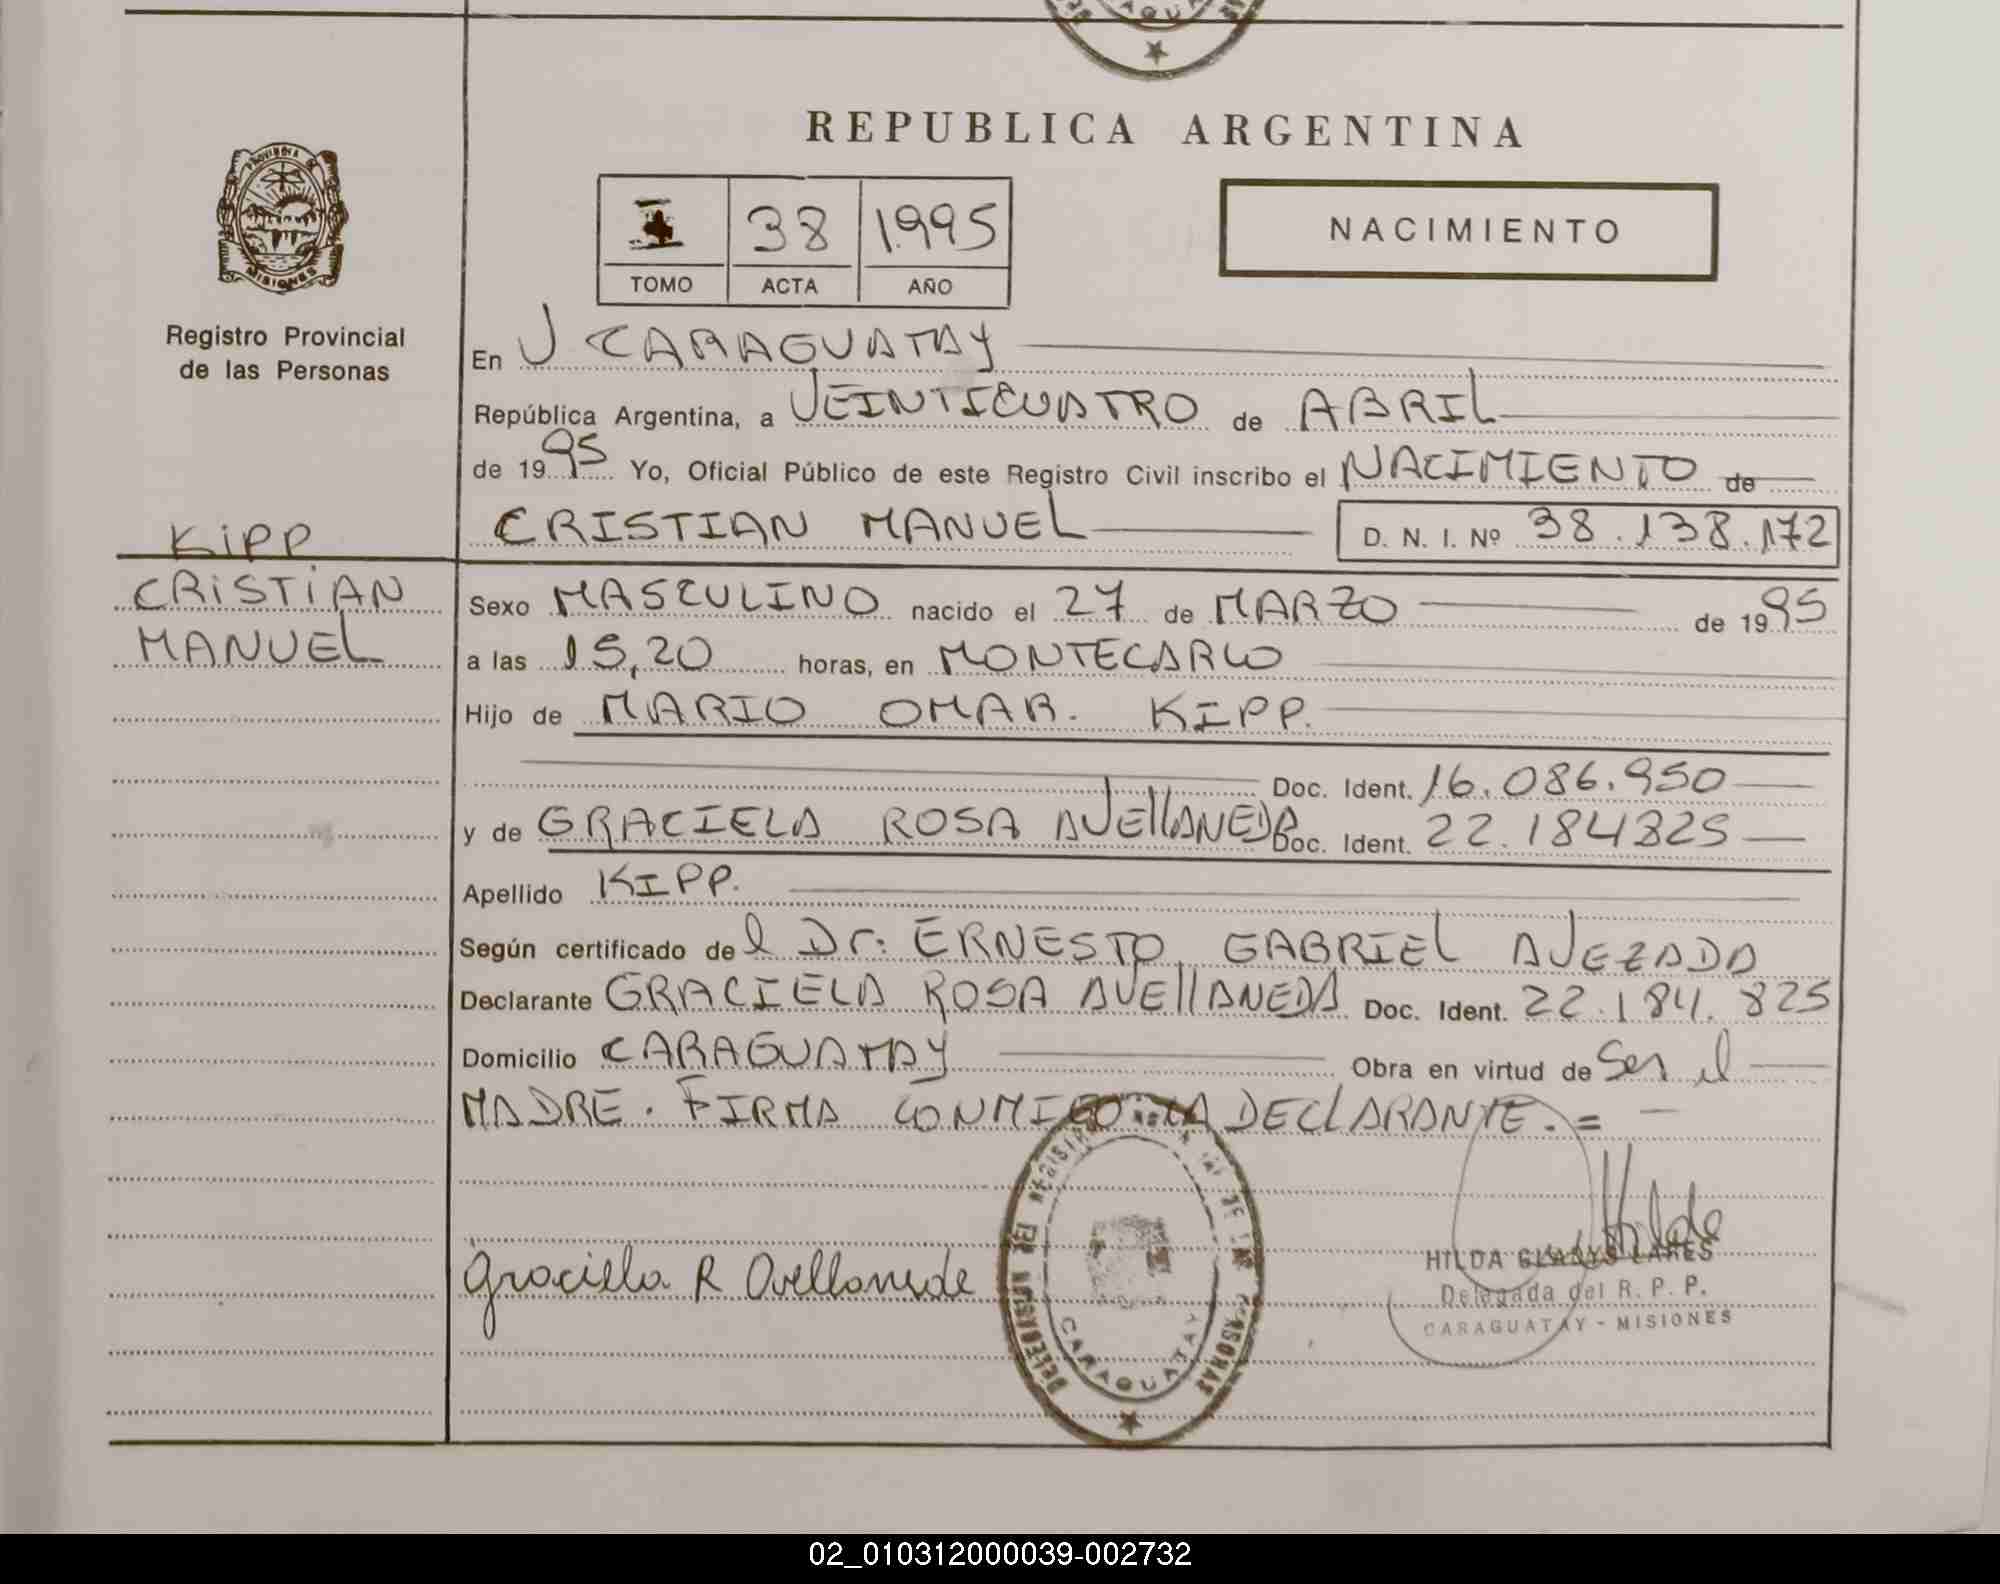 REPUBLICA ARGENTINA
PROVINCIA DE
MISIONES
Registro Provincial
de las Personas
I 38 1.995
TOMO ACTA AÑO
NACIMIENTO
En CARAGUATAY
República Argentina, a VEINTICUATRO de ABRIL
de 1995 Yo, Oficial Público de este Registro Civil inscribo el NACIMIENTO de
CRISTIAN MANUEL D. N. I. Nº 38.138.172
KiPP
CRiSTiAN
MANUEL
Sexo MASCULINO nacido el 27 de MARZO de 1995
a las 15,20 horas, en MONTECARLO
Hijo de MARIO OMAR. KIPP.
Doc. Ident. 16.086.950
y de GRACIELA ROSA AVEllANEDA Doc. Ident. 22.184825
Apellido KIPP.
Según certificado del Dr. ERNESTO GABRIEL AVEZADA
Declarante GRACIELA ROSA AVEllANEDA Doc. Ident. 22.184.825
Domicilio CARAGUATAY Obra en virtud de Ser
MADRE. FIRMA CONMIGO LA DECLARANTE. =
Graciela R Avellaneda
DELEGACION DEL REGISTRO DE LAS PERSONAS
CARAGUATAY
HILDA GLADYS LARES
Delegada del R. P. P.
CARAGUATAY - MISIONES
02_010312000039-002732